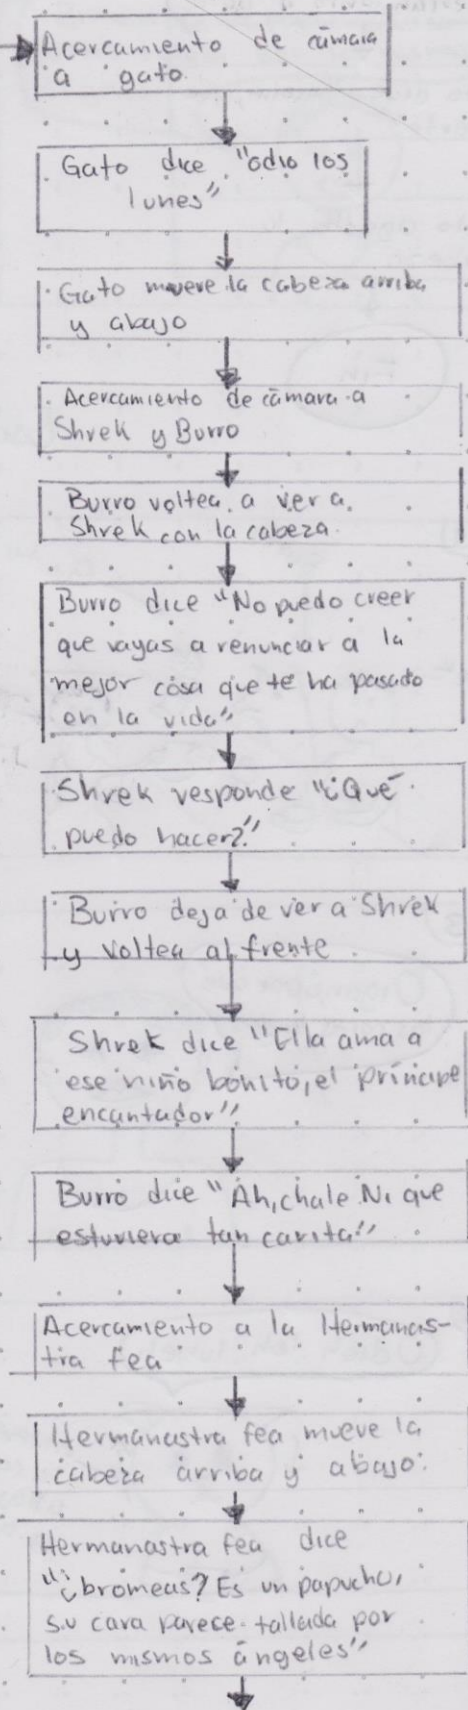 Acercamiento de cámara
a gato.
Gato dice "odio los
lunes"
Gato mueve la cabeza arriba
y abajo
Acercamiento de cámara a
Shrek y Burro
Burro voltea a ver a
Shrek con la cabeza.
Burro dice "No puedo creer
que vayas a renunciar a la
mejor cosa que te ha pasado
en la vida"
Shrek responde "¿Qué
puedo hacer?"
Burro deja de ver a Shrek
y voltea al frente
Shrek dice "Ella ama a
ese niño bonito, el príncipe
encantador"
Burro dice "Ah, chale. Ni que
estuviera tan carita"
Acercamiento a la Hermanas-
tra fea
Hermanastra fea mueve la
cabeza arriba y abajo.
Hermanastra fea dice
"¿bromeas? Es un papucho,
su cara parece tallada por
los mismos ángeles"